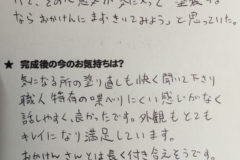 ならおかけんにまずきいてみよう」と思っていた。
★ 完成後の今のお気持ちは?
気になる所の塗り直しも快く聞いて下さり
職人特有の喋りにくい感じがなく
話しやすく、良かったです。外観もとても
キレイになり満足しています。
おかけんさんとは長く付き合えそうです。